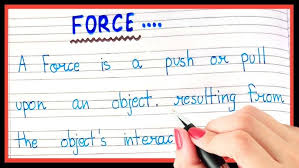 FORCE....
A Force is a push or pull
upon an object. resulting from
the object's interac